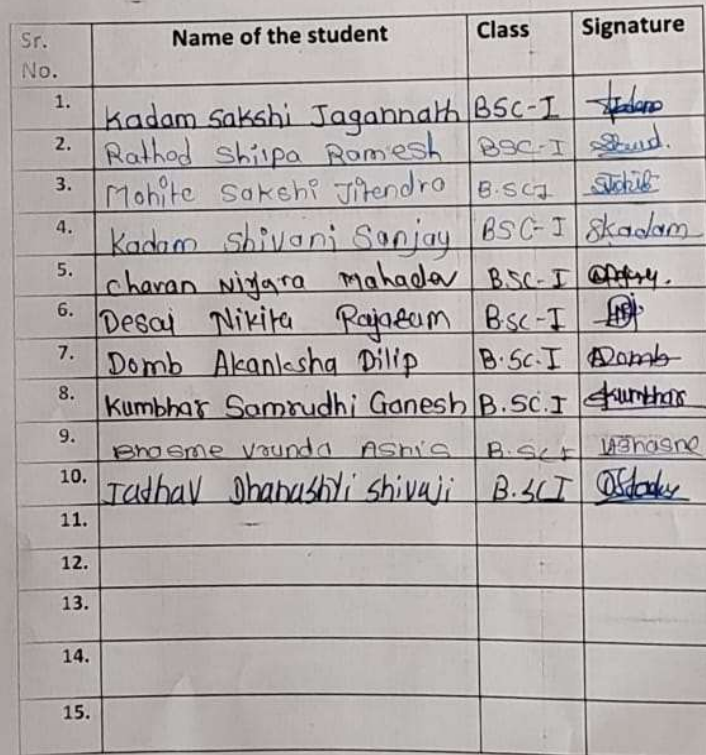 Sr. No. Name of the student Class Signature
1. Kadam Sakshi Jagannath BSC-I
2. Rathod Shilpa Ramesh BSC-I
3. Mohite Sakshi Jitendra B.SCI
4. Kadam Shivani Sanjay BSC-I Skadam
5. Chavan Nigara Mahadev B.SC-I
6. Desai Nikita Rajaram B.sc-I
7. Domb Akanksha Dilip B.Sc.I Domb
8. Kumbhar Samrudhi Ganesh B.SC.I Kumbhar
9. Bhasme Vrunda Ashis B.SCI VBhasme
10. Jadhav Dhanashri Shivaji B.SCI
11.
12.
13.
14.
15.